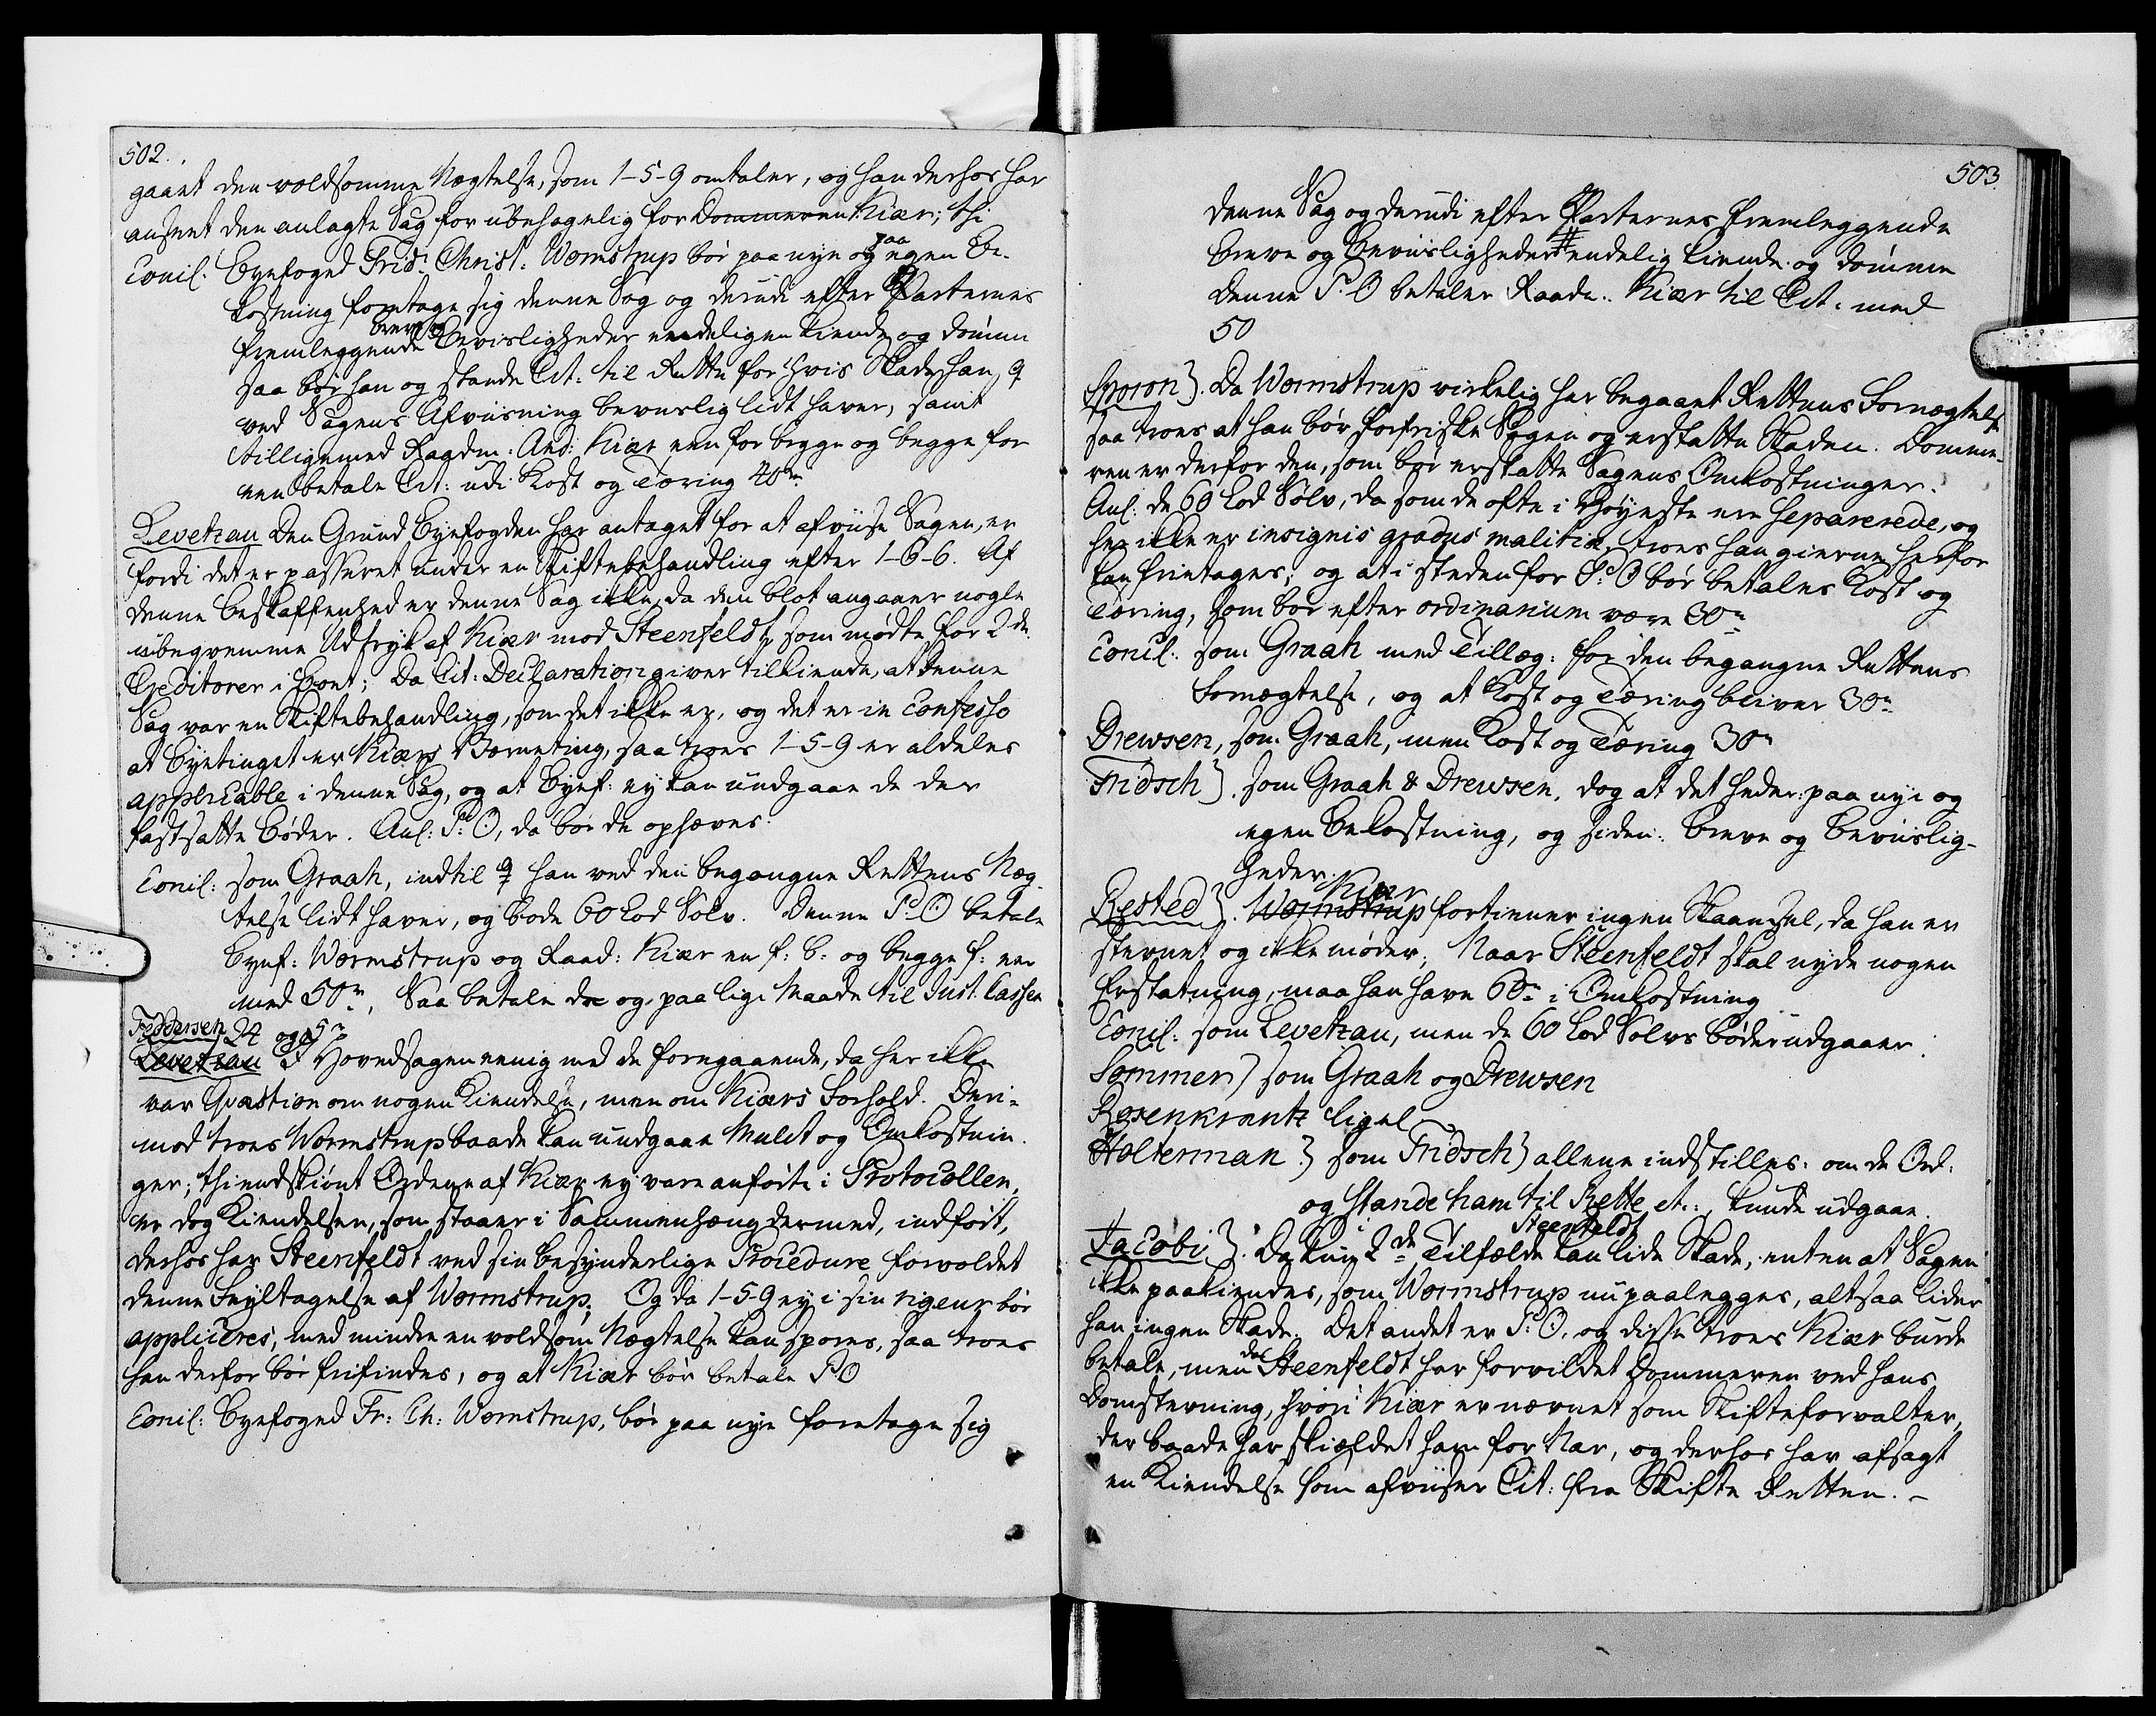 502.
gaaet den voldsomme Nægtelse, som 1-5-9 omtaler, og han derhos har
anseet den anlagte Sag for ubehagelig for Dommeren Kiær; thi
Concl. Byefoged Frid: Christ: Wormstrup bør paa nye og paa egen Be-
kostning foretage sig denne Sag og derudi efter Parternes
fremleggende breve og beviisligheder endeligen kiende og dømme
saa bør han og stande Cit: til Rette for hvis Skade han
ved Sagens Afviisning beviislig lidt haver, samt
tilligemed Raadm: And: Kiær een for begge og begge for
een betale Cit: udi Kost og Tæring 40 rr
Levetzau Den Grund Byefogden har antaget for at afviise Sagen, er
fordi det er passeret under en Skiftebehandling efter 1-6-6. Af
denne beskaffenhed er denne Sag ikke, da den blot angaaer nogle
ubeqvemme Udtryk af Kiær mod Steenfeldt, som mødte for 2de
Creditorer i boet; Da Cit: Declaration giver tilkiende, at denne
Sag var en Skiftebehandling, som det ikke er, og det er in Confesso
at byetinget er Kiærs Værneting, saa troes 1-5-9 er aldeles
applicable i denne Sag, og at byef: ey kan undgaae de der
fastsatte bøder. Anl: P:O, da bør de ophæves.
Concl: som Graah, indtil han ved den begangne Rettens Næg-
telse lidt haver, og bøde 60 Lod Sølv. Denne P:O betale
Byef: Wormstrup og Raad: Kiær en f: b: og begge f: een
med 50 rr, Saa betale de og paa lige Maade til Just: Cassen
Feddersen 24 og 5 rr
Levetzau I Hovedsagen eenig med de foregaaende, da her ikke
var Qvæstion om nogen Kiendelse, men om Kiærs Forhold. Deri-
mod troes Wormstrup baade kan undgaae Mulct og Omkostnin-
ger; thi endskiønt Ordene af Kiær ey vare anførte i Protocollen,
er dog Kiendelsen, som staaer i Sammenhæng dermed, indført,
derhos har Steenfeldt ved sin besynderlige Procedure forvoldet
denne Feyltagelse af Wormstrup. Og da 1-5-9 ey i sin rigeur bør
appliceres, med mindre en voldsom Nægtelse kan spores, saa troes
han derfor bør frifindes, og at Kiær bør betale P:O
Concl: Byefoged Fr: Ch: Wormstrup, bør paa nye foretage sig
503.
denne Sag og derudi efter Parternes fremleggende
breve og beviisligheder # endelig kiende og dømme
denne P:O betaler Raadm: Kiær til Cit: med
50
Sporon). Da Wormstrup virkelig har begaaet Rettens Fornægtelse
saa troes at han bør forfriske Sagen og erstatte Skaden. Domme-
ren er derfor den, som bør erstatte Sagens Omkostninger.
Anl: de 60 Lod Sølv, da som de ofte i Høyeste ere separerede, og
her ikke er insignis gradus malitiæ, troes han gierne herfor
kan fritages; og at i steden for P:O bør betales Kost og
Tæring, som bør efter ordinarium være 30 rr
Concl: som Graah med Tillæg: for den begangne Rettens
Fornægtelse, og at Kost og Tæring bliver 30 rr
Drewsen, som Graah, men Kost og Tæring 30 rr
Fridsch). som Graah & Drewsen, dog at det heder: paa nye og
egen bekostning, og siden: breve og beviislig-
heder.
Rested). Wormstrup Kiær fortiener ingen Skaansel, da han er
stevnet og ikke møder; Naar Steenfeldt skal nyde nogen
Erstatning, maa han have 60 rr i Omkostning
Concl: som Levetzau, men de 60 Lod Sølvs bøder udgaaer
Sommer) som Graah og Drewsen
Rosenkrantz ligel
Holterman) som Fridsch) allene indstilles: om de Ord:
og stande ham til Rette et:, kunde udgaae.
Jacobi). Da kun i 2de Tilfælde Steenfeldt kan lide Skade, enten at Sagen
ikke paakiendes, som Wormstrup nu paalegges, altsaa lider
han ingen Skade. Det andet er P:O, og disse troes Kiær burde
betale, men da Steenfeldt har forvildet Dommeren ved hans
Domstevning, hvori Kiær er nævnet som Skifteforvalter,
der baade har skieldet ham for Nar, og derhos har afsagt
en Kiendelse som afviiser Cit: fra Skifte Retten. -